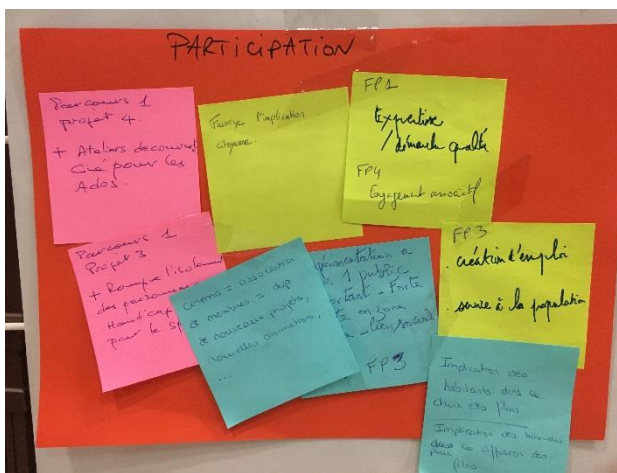 PARTICIPATION
Parcours 1
projet 4.
+ Ateliers découverte
Ciné pour les
Ados.
Favorise l'implication
citoyenne.
FP1
Expertise
/ démarche qualité
FP4
Engagement associatif
Parcours 1
Projet 3
+ Rompre l'isolement
des personnes
Handicap
pour le
cinéma = association
de membres = dvp
de nouveaux projets,
nouvelles animations,
...
1 public
Forte
en zone
lien social
FP3
FP3
. création d'emploi
. service à la population
Implication des
habitants dans le
choix des films
Implication des
diffusion des
films